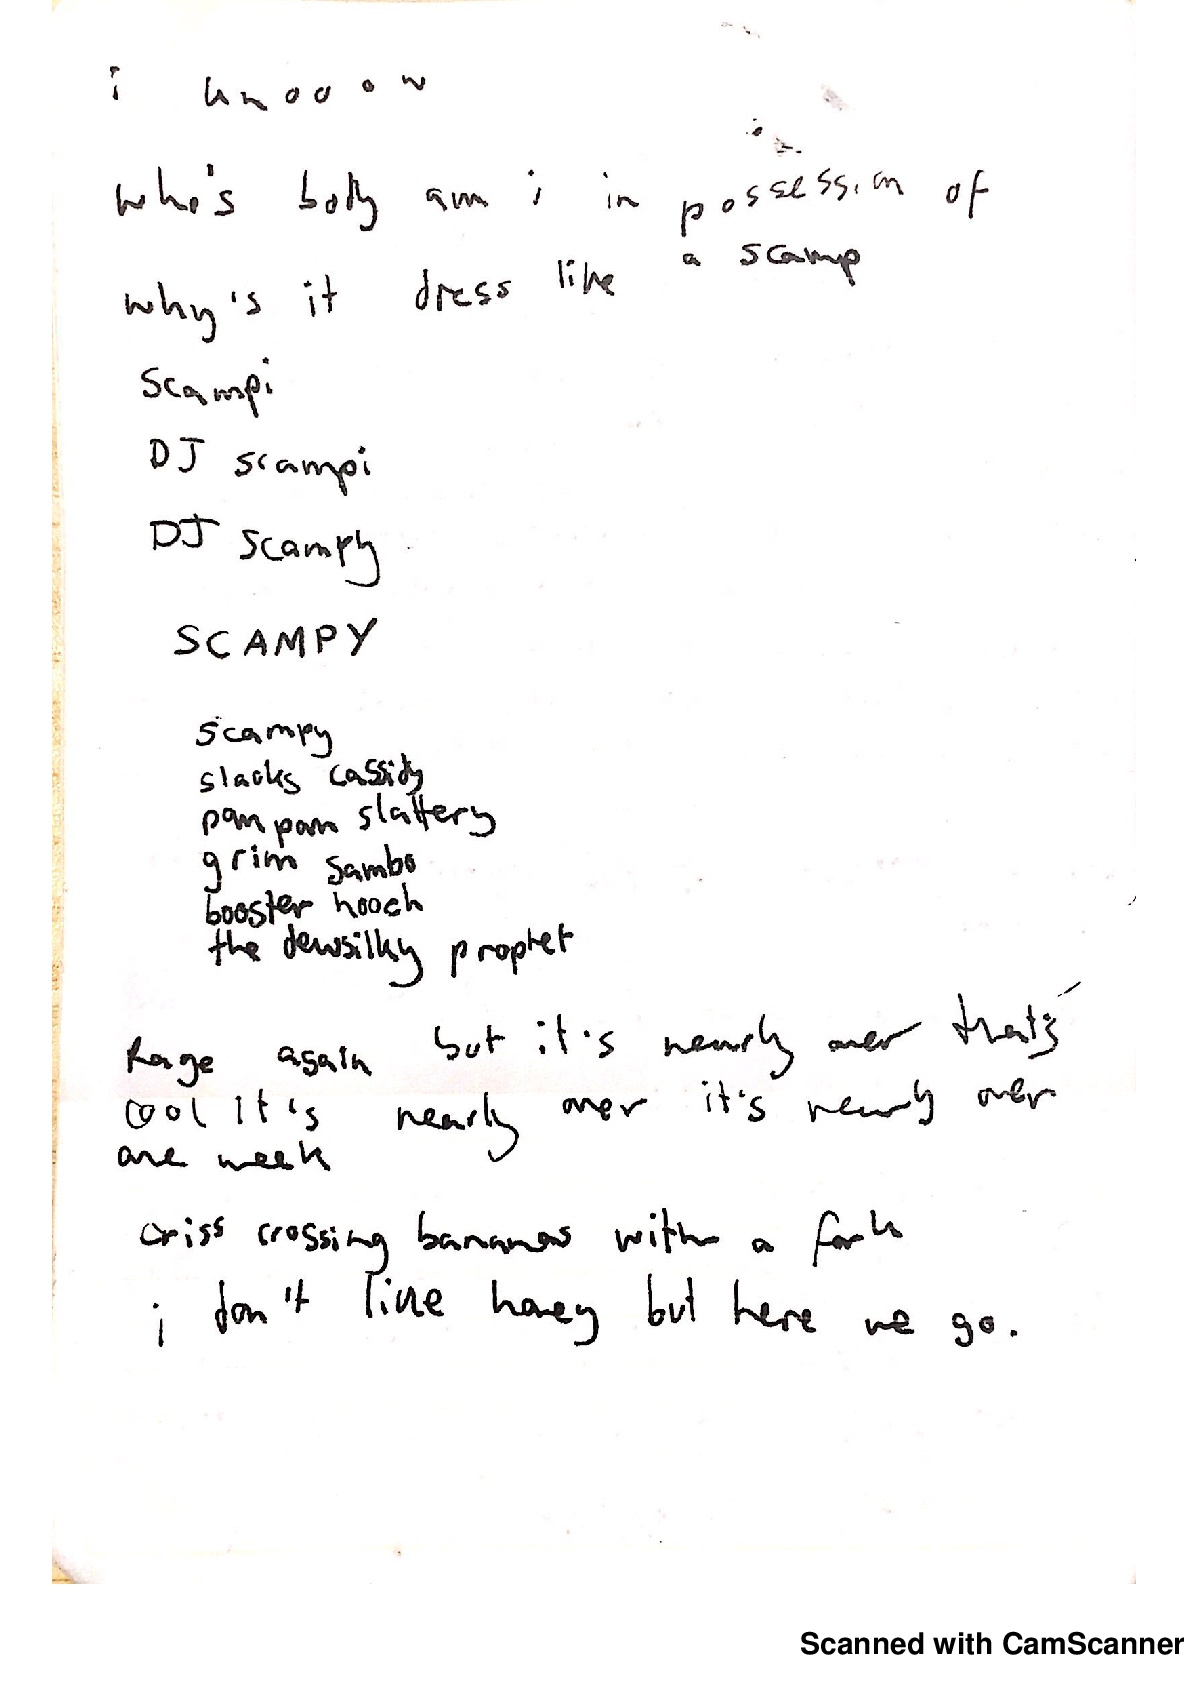 i knooow
who's body am i in possession of
why's it dress like a scamp
scampi
DJ scampi
DJ scampy
SCAMPY
scampy
slacks cassidy
pam pam slattery
grim sambo
booster hooch
the dewsilky prophet
Rage again but it's nearly over that's
cool It's nearly over it's nearly over
one week
criss crossing bananas with a fork
i don't like honey but here we go.
Scanned with CamScanner